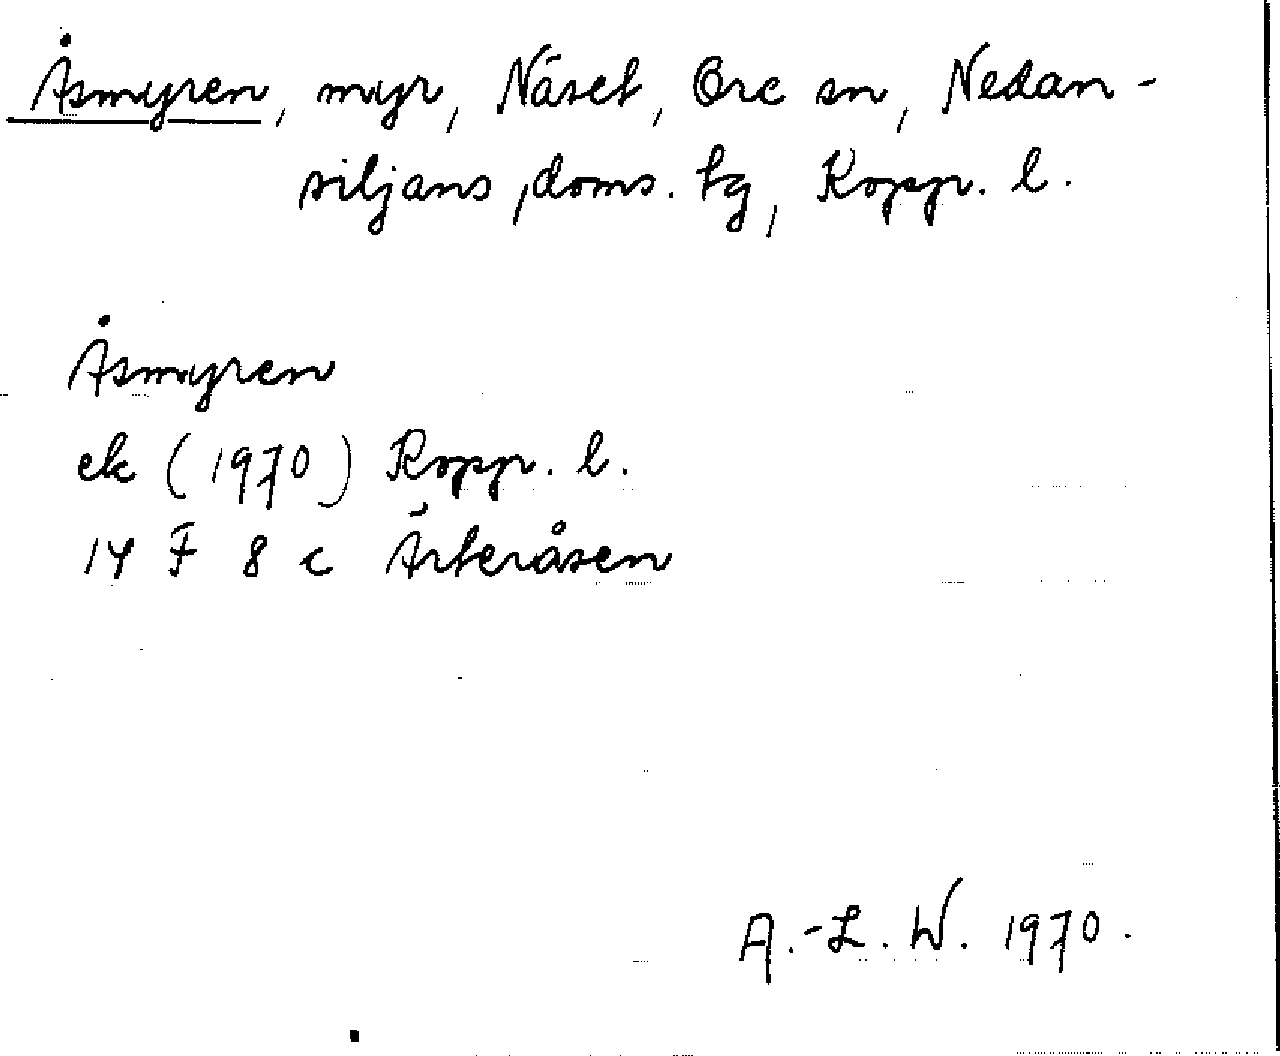 Åsmyren, myr, Näset, Ore sn, Nedan-
siljans doms. tg, Kopp. l.
Åsmyren
ek (1970) Kopp. l.
14 F 8 c Ärteråsen
A.-L. W. 1970.